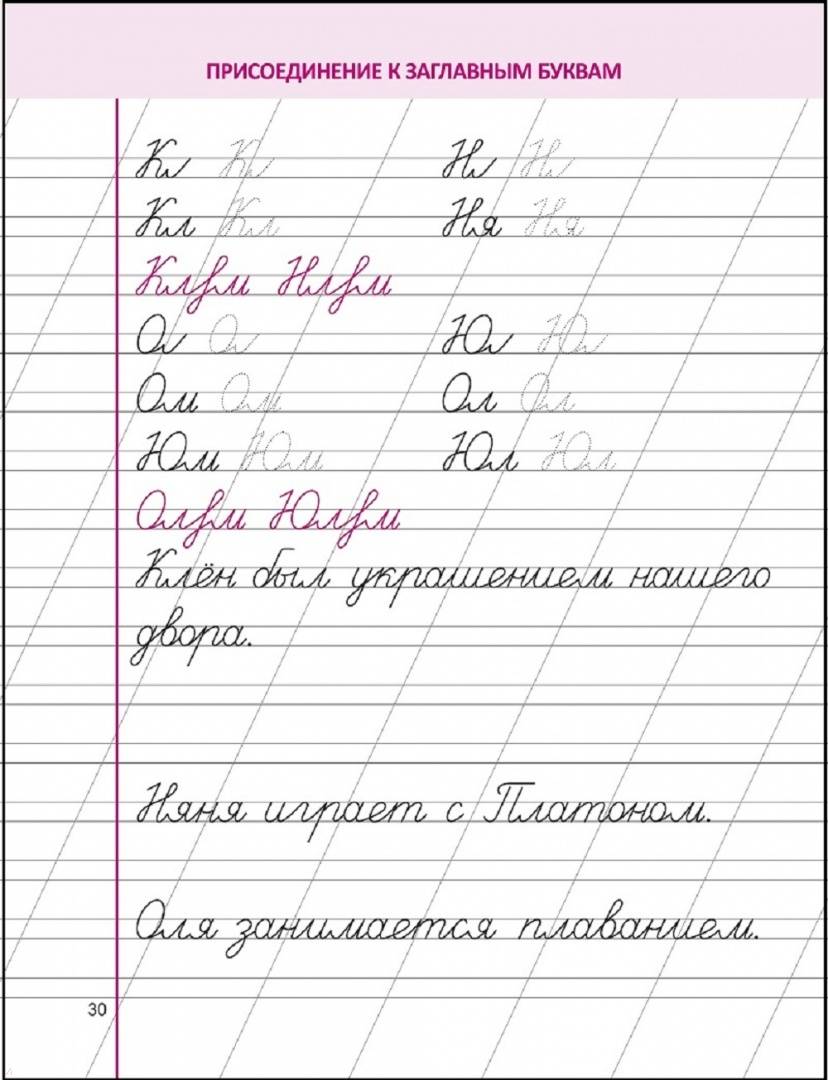 ПРИСОЕДИНЕНИЕ К ЗАГЛАВНЫМ БУКВАМ
К К Н Н
Кл Кл Ня Ня
О О Ю Ю
Ом Ом Ол Ол
Юм Юм Юл Юл
Клён был украшением нашего
двора.
Няня играет с Платоном.
Оля занимается плаванием.
30